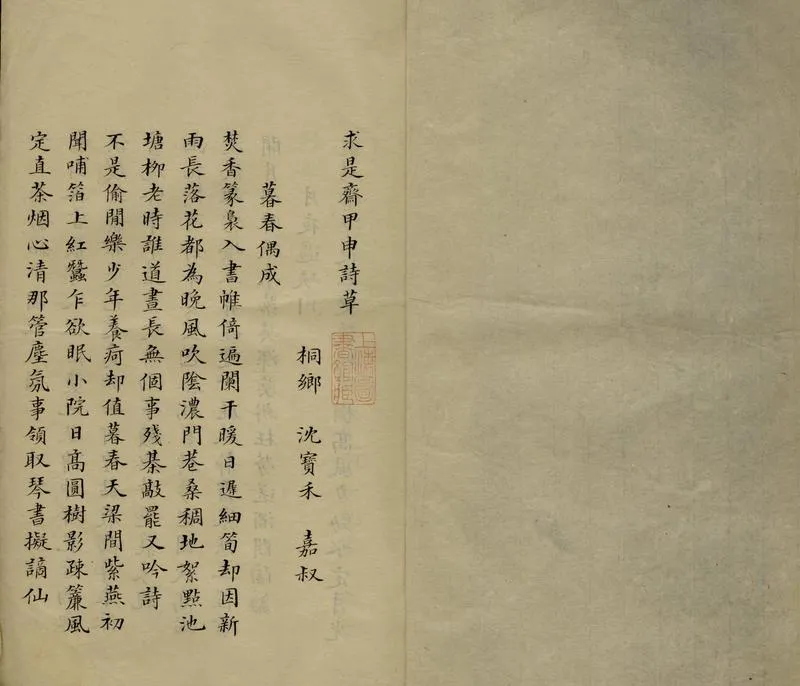 求是齋甲申詩草
桐鄉 沈寶禾 嘉叔
暮春偶成
焚香篆裊入書帷倚遍闌干暖日遲細筍却因新
雨長落花都為晚風吹陰濃門巷桑稠地絮點池
塘柳老時誰道晝長無個事殘棊敲罷又吟詩
不是偷閒樂少年養疴却值暮春天梁間紫燕初
聞哺箔上紅蠶乍欲眠小院日高圓樹影疎簾風
定直茶烟心清那管塵氛事領取琴書擬謫仙
上海圖書館藏